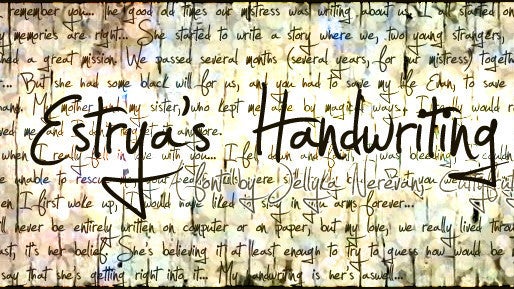 remember you... The good old times our mistress was writing about us. I all started on
y memories are right... She started to write a story where we, two young strangers,
had a great mission. We passed several months (several years, for our mistress) together
... But she had some black will for us, and you had to save my life Evan, to save
My mother my sister, who kept me alive by magical ways. would
Estrya's Handwriting
ved me and don't anymore.
when I really fell in love with you... I fell down and was bleeding couldn
unable to rescue
Font by Jellyka Nerevan
en I first woke up, I would have liked stay in you arms forever...
ll never be entirely written on computer or on paper, but my love, we really lived throu
ast, it's her belief. She's believing it at least enough to try to guess how would be
say that she's getting right into it... My handwriting is her's aswell...